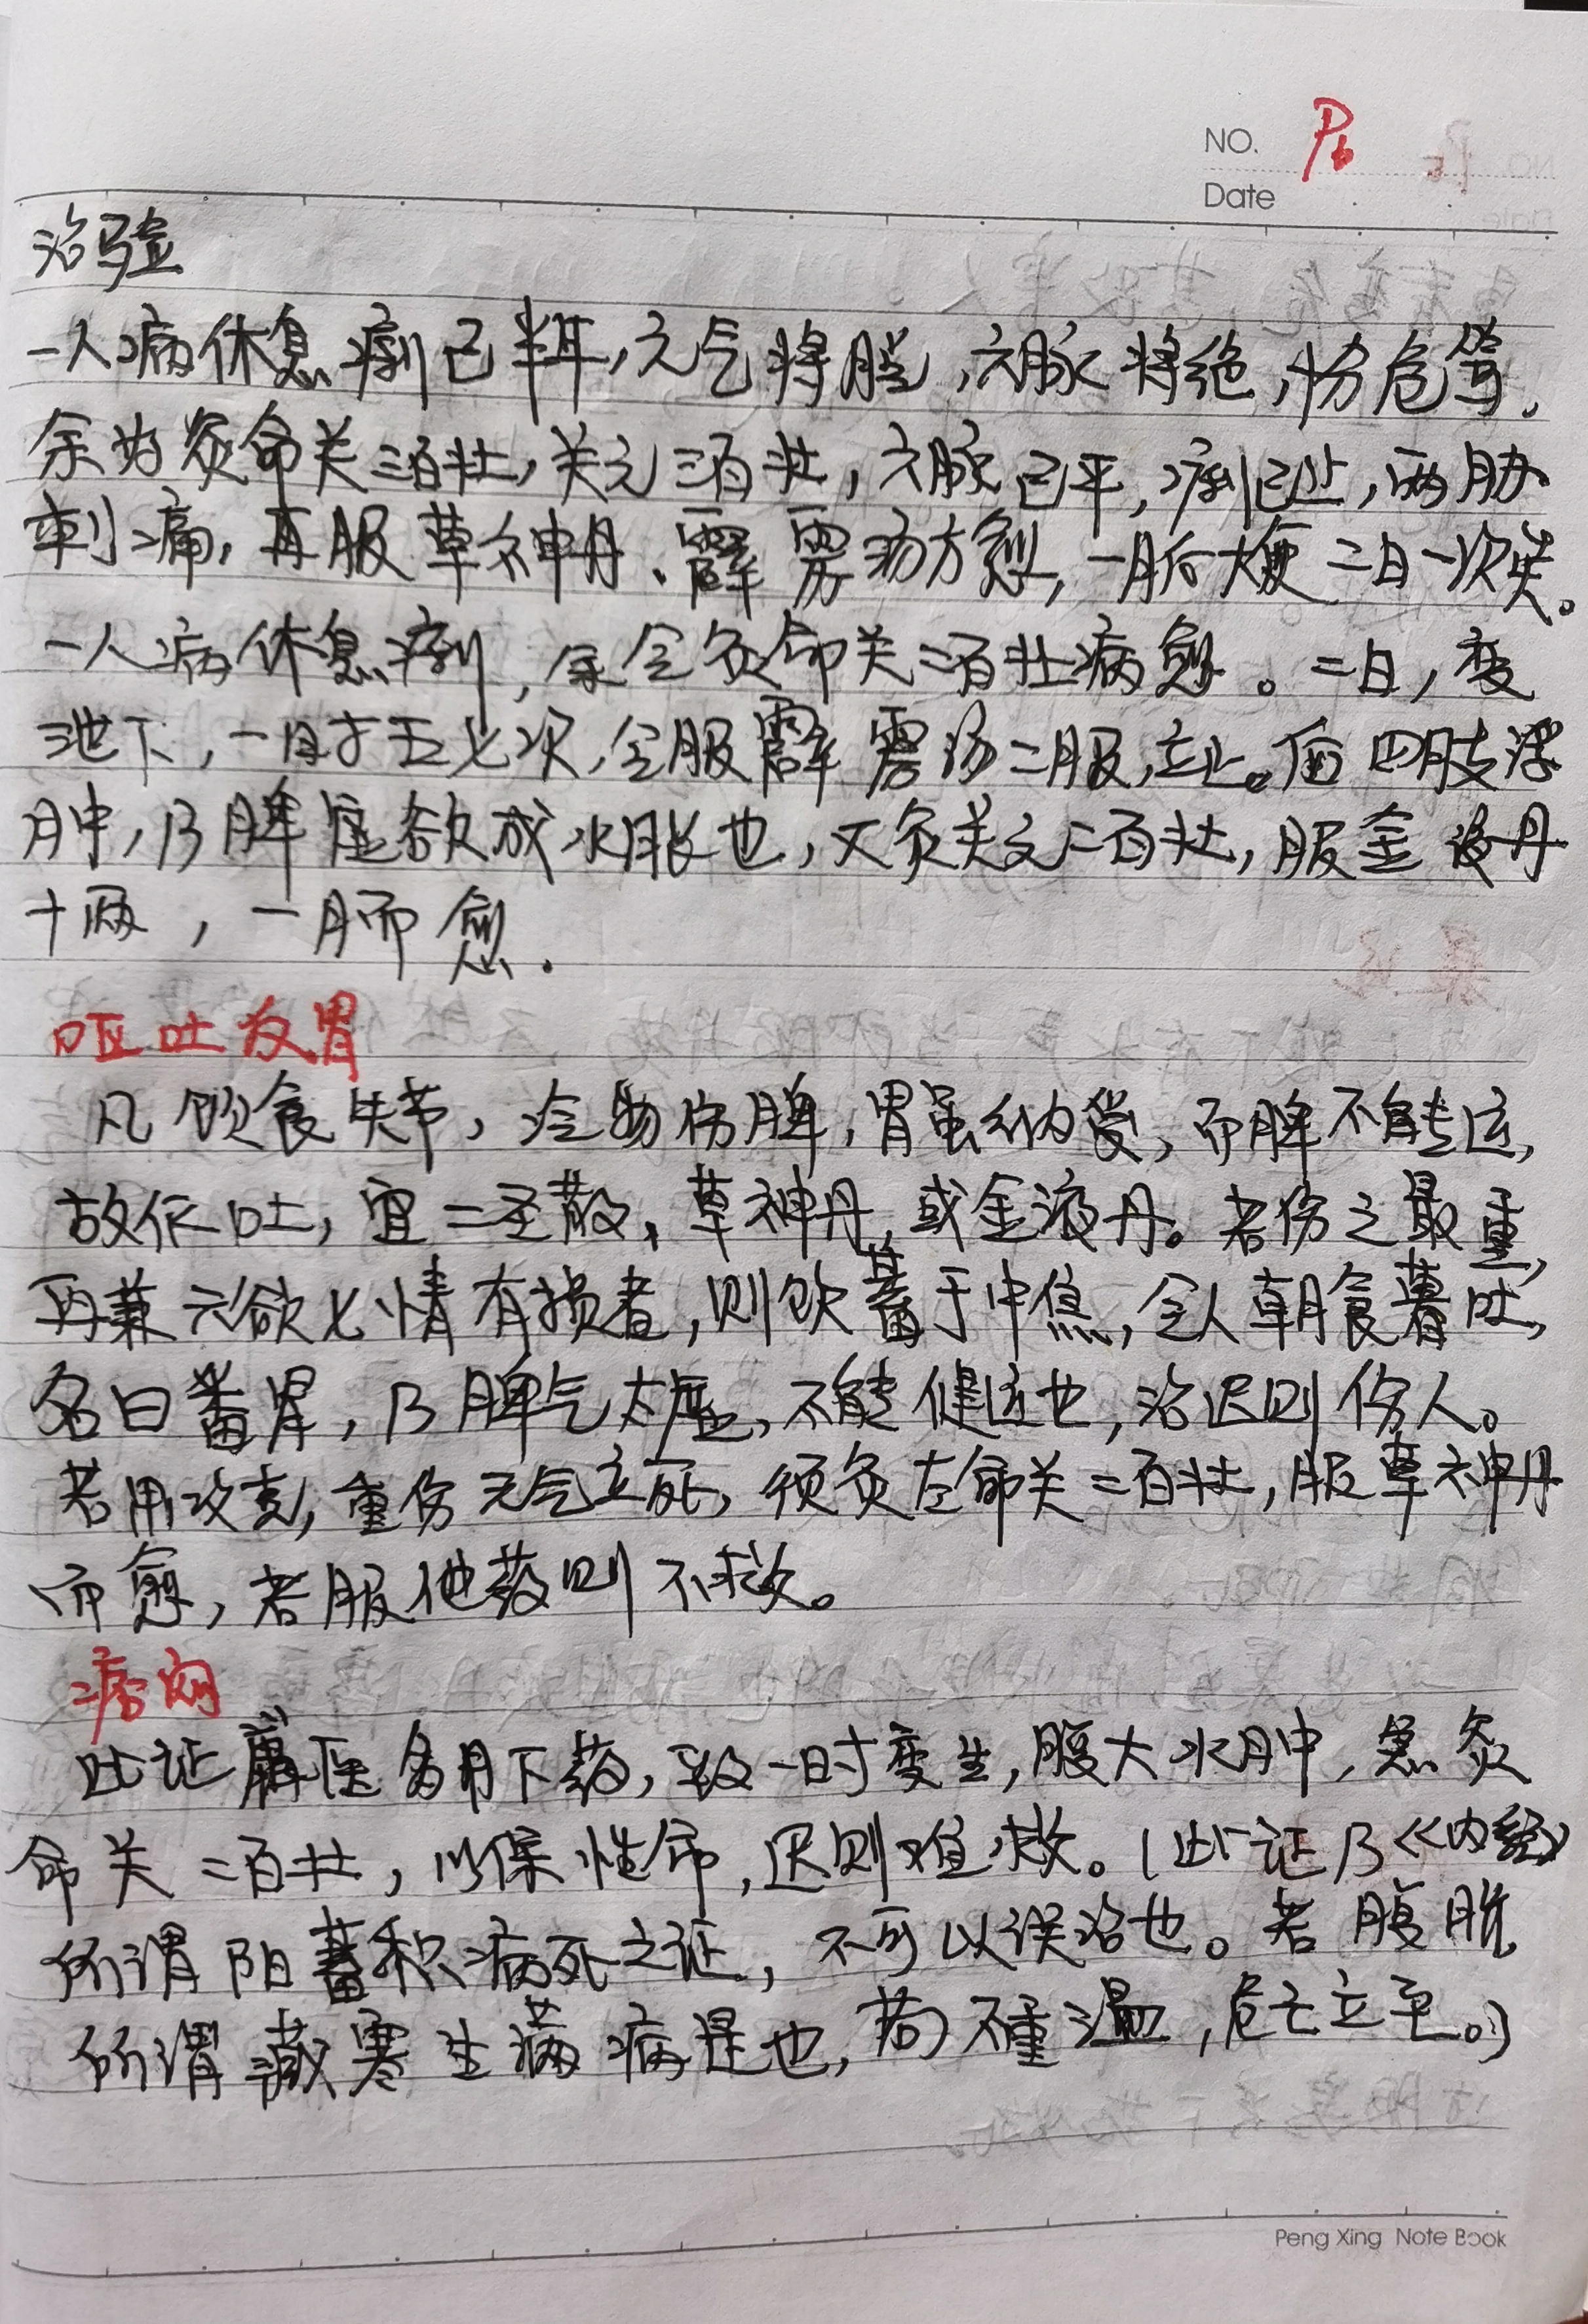 NO. P6
Date
治验
一人病休息痢已半年,元气将脱,六脉将绝,十分危笃,
余为灸命关三百壮,关元三百壮,六脉已平,痢已止,两胁
刺痛,再服草神丹、霹雳汤方愈,一月后大便二日一次矣。
一人病休息痢,余令灸命关二百壮病愈。二日,变
泄下,一日十五七次,令服霹雳汤二服,立止。后四肢浮
肿,乃脾虚欲成水胀也,又灸关元二百壮,服金液丹
十两,一月而愈.
呕吐反胃
凡饮食失节,冷物伤脾,胃虽纳受,而脾不能运,
故作吐,宜二圣散,草神丹,或金液丹。若伤之最重,
再兼六欲七情有损者,则饮蓄于中焦,令人朝食暮吐,
名曰番胃,乃脾气太虚,不能健运也,治迟则伤人。
若用攻克,重伤元气立死,须灸左命关二百壮,服草神丹
而愈,若服他药则不救。
痞闷
此证庸医多用下药,致一时变生,腹大水肿,急灸
命关二百壮,以保性命,迟则难救。(此证乃《内经》
所谓阳蓄积病死之证,不可以误治也。若腹胀
所谓藏寒生满病是也,苟不重温,危亡立至。)
Peng Xing Note Book